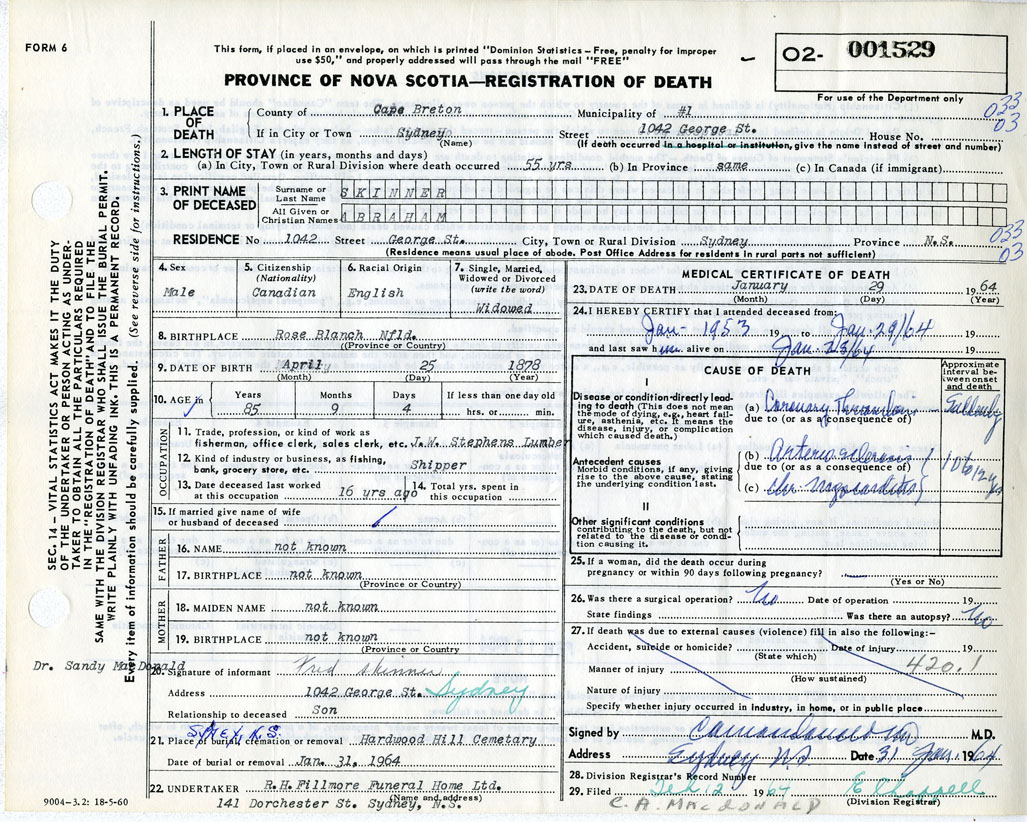 FORM 6
This form, if placed in an envelope, on which is printed "Dominion Statistics – Free, penalty for improper
use $50," and properly addressed will pass through the mail "FREE"
PROVINCE OF NOVA SCOTIA—REGISTRATION OF DEATH
O2- 001529
For use of the Department only
033
03
1. PLACE OF DEATH
County of Cape Breton Municipality of #1
If in City or Town Sydney Street 1042 George St. House No.
(Name) (If death occurred in a hospital or institution, give the name instead of street and number)
2. LENGTH OF STAY (in years, months and days)
(a) In City, Town or Rural Division where death occurred 55 yrs. (b) In Province same (c) In Canada (if immigrant)
3. PRINT NAME OF DECEASED
Surname or Last Name SKINNER
All Given or Christian Names ABRAHAM
033
03
RESIDENCE No 1042 Street George St. City, Town or Rural Division Sydney Province N.S.
(Residence means usual place of abode. Post Office Address for residents in rural parts not sufficient)
4. Sex
Male
5. Citizenship
(Nationality)
Canadian
6. Racial Origin
English
7. Single, Married,
Widowed or Divorced
(write the word)
Widowed
8. BIRTHPLACE Rose Blanch Nfld.
(Province or Country)
9. DATE OF BIRTH April 25 1878
(Month) (Day) (Year)
10. AGE in
Years Months Days If less than one day old
85 9 4 hrs. or min.
OCCUPATION
11. Trade, profession, or kind of work as
fisherman, office clerk, sales clerk, etc. J.W. Stephens Lumber
12. Kind of industry or business, as fishing,
bank, grocery store, etc. Shipper
13. Date deceased last worked
at this occupation 16 yrs ago
14. Total yrs. spent in
this occupation
15. If married give name of wife
or husband of deceased
FATHER
16. NAME not known
17. BIRTHPLACE not known
(Province or Country)
MOTHER
18. MAIDEN NAME not known
19. BIRTHPLACE not known
(Province or Country
Dr. Sandy MacDonald
20. Signature of informant Fred Skinner
Address 1042 George St. Sydney
Relationship to deceased Son
Sydney, N.S.
21. Place of burial, cremation or removal Hardwood Hill Cemetary
Date of burial or removal Jan. 31, 1964
22. UNDERTAKER R.H. Fillmore Funeral Home Ltd.
(Name and address)
141 Dorchester St. Sydney, N.S.
9004-3.2: 18-5-60
MEDICAL CERTIFICATE OF DEATH
23. DATE OF DEATH January 29 1964
(Month) (Day) (Year)
24. I HEREBY CERTIFY that I attended deceased from:
Jan - 1953 19 to Jan. 29/64 19
and last saw him alive on Jan. 23/64 19
CAUSE OF DEATH
Approximate
interval be-
tween onset
and death
I
Disease or condition directly lead-
ing to death (This does not mean
the mode of dying, e.g., heart fail-
ure, asthenia, etc. It means the
disease, injury, or complication
which caused death.)
(a) Coronary Thrombosis Suddenly
due to (or as a consequence of)
Antecedent causes
Morbid conditions, if any, giving
rise to the above cause, stating
the underlying condition last.
(b) Arteriosclerosis
due to (or as a consequence of)
10 to 12 yrs
(c) Chr Myocarditis
II
Other significant conditions
contributing to the death, but not
related to the disease or condi-
tion causing it.
25. If a woman, did the death occur during
pregnancy or within 90 days following pregnancy?
(Yes or No)
26. Was there a surgical operation? No Date of operation 19
State findings Was there an autopsy? No
27. If death was due to external causes (violence) fill in also the following:–
Accident, suicide or homicide? Date of injury 19
(State which)
420.1
Manner of injury
(How sustained)
Nature of injury
Specify whether injury occurred in industry, in home, or in public place
Signed by M.D.
Address Sydney NS Date 31 Jan. 1964
28. Division Registrar's Record Number
29. Filed Feb 12 1964
(Division Registrar)
C. A. MACDONALD
SEC. 14 – VITAL STATISTICS ACT MAKES IT THE DUTY
OF THE UNDERTAKER OR PERSON ACTING AS UNDER-
TAKER TO OBTAIN ALL THE PARTICULARS REQUIRED
IN THE "REGISTRATION OF DEATH" AND TO FILE THE
SAME WITH THE DIVISION REGISTRAR WHO SHALL ISSUE THE BURIAL PERMIT.
WRITE PLAINLY WITH UNFADING INK. THIS IS A PERMANENT RECORD.
Every item of information should be carefully supplied. (See reverse side for instructions.)